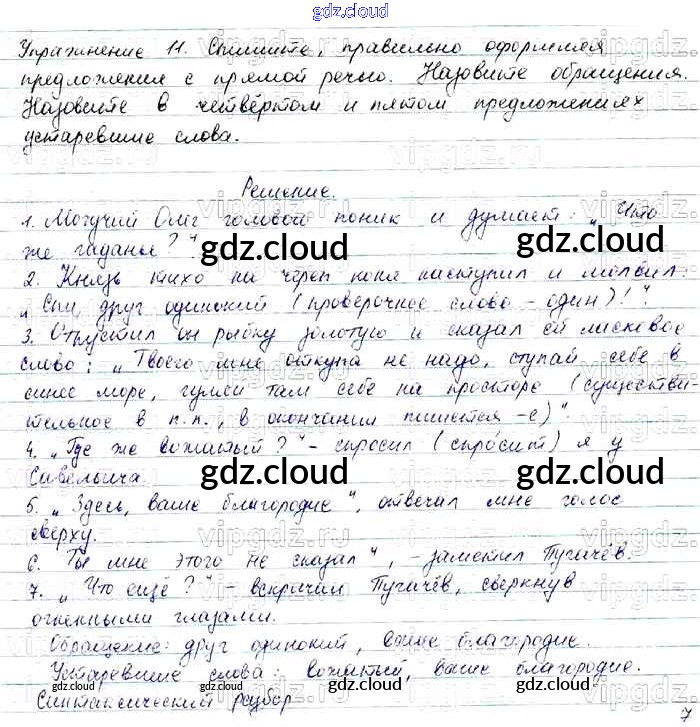 gdz.cloud
Упражнение 11. Спишите, правильно оформляя
предложения с прямой речью. Назовите обращения.
Назовите в четвёртом и пятом предложениях
устаревшие слова.
Решение.
1. Могучий Олег головой поник и думает: „Что
же гаданье?“
gdz.cloud gdz.cloud
2. Князь тихо на череп коня наступил и молвил:
„Спи, друг одинокий (проверочное слово - один)!“.
3. Отпустил он рыбку золотую и сказал ей ласковое
слово: „Твоего мне откупа не надо, ступай себе в
синее море, гуляй там себе на просторе (существи-
тельное в п.п., в окончании пишется -е)“.
4. „Где же вожатый?“ - спросил (спросит) я у
Савельича.
gdz.cloud gdz.cloud
5. „Здесь, ваше благородие“, отвечал мне голос
сверху.
6. Ты мне этого не сказал“, - заметил Пугачёв.
7. „Что ещё?“ - вскричал Пугачёв, сверкнув
огненными глазами.
Обращение: друг одинокий, ваше благородие.
Устаревшие слова: вожатый, ваше благородие.
gdz.cloud gdz.cloud gdz.cloud
Синтаксический разбор
7